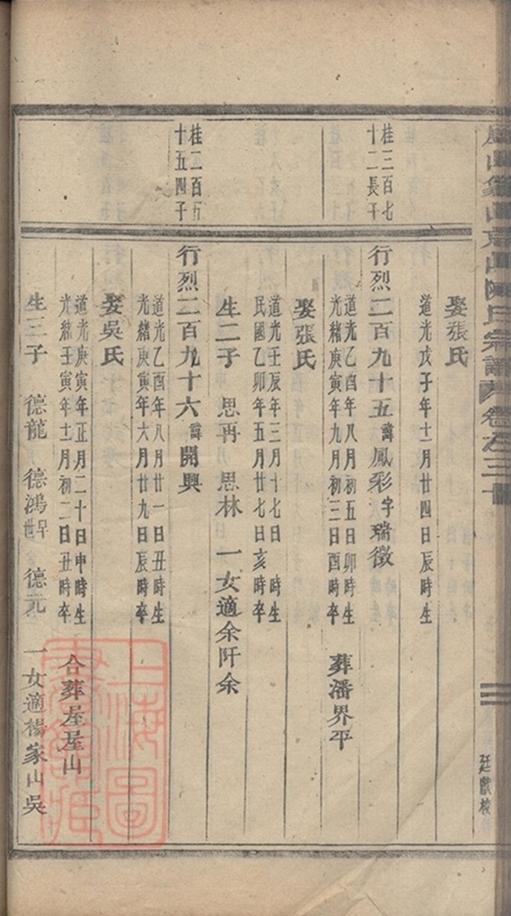 陳氏宗譜 卷之三十
娶張氏
道光戊子年十二月廿四日辰時生
桂三百七
十二長子
行烈二百九十五諱鳳彩字瑞徵
道光乙酉年八月初五日卯時生
光緒庚寅年九月初三日酉時卒 葬潘界平
娶張氏
道光壬辰年三月十七日生
民國乙卯年五月廿七日亥時卒
生二子 思再 思林 一女適余阡余
桂二百五
十五四子
行烈二百九十六諱開興
道光乙酉年八月廿一日丑時生
光緒庚寅年六月廿九日辰時卒
娶吳氏
道光庚寅年正月二十日申時生
光緒壬寅年十二月初二日丑時卒 合葬屋山
生三子 德龍 德鴻早世 德元 一女適楊家山吳
上海圖
書館藏